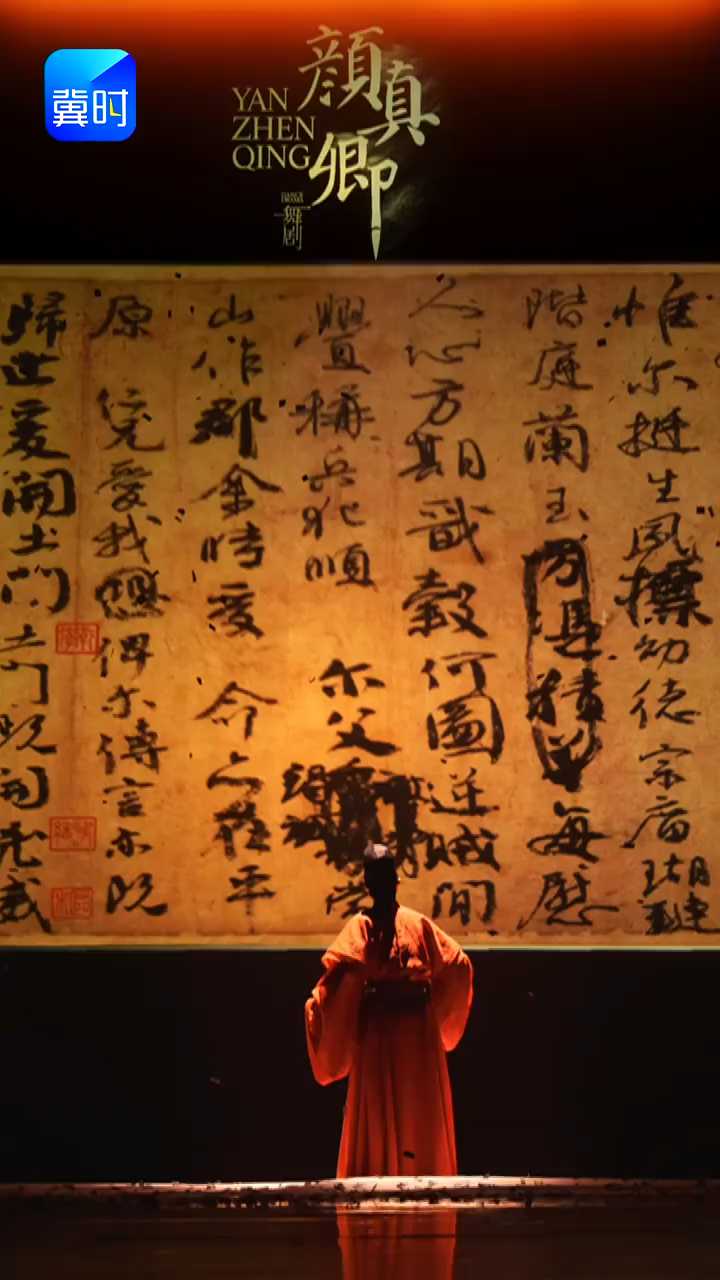 冀时
顔真卿
YAN
ZHEN
QING
舞剧
惟尔挺生夙標幼德宗廟瑚璉
階庭蘭玉方憑積善每慰
人心方期戩穀何圖逆賊間
釁稱兵犯順尔父竭誠常
山作郡余時受命亦在平
原仁兄愛我俾尔傳言尔既
歸止爰開土門土門既開凶威